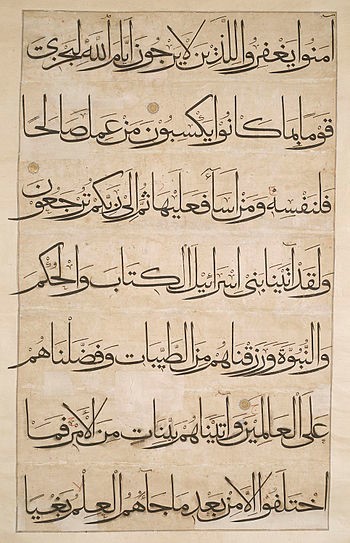 آمنوا يغفروا للذين لا يرجون أيام الله ليجزي
قوما بما كانوا يكسبون من عمل صالحا
فلنفسه ومن أساء فعليها ثم الى ربكم ترجعون
ولقد آتينا بني اسرائيل الكتاب والحكم
والنبوة ورزقناهم من الطيبات وفضلناهم
على العالمين وآتيناهم بينات من الأمر فما
اختلفوا الا من بعد ما جاءهم العلم بغيا